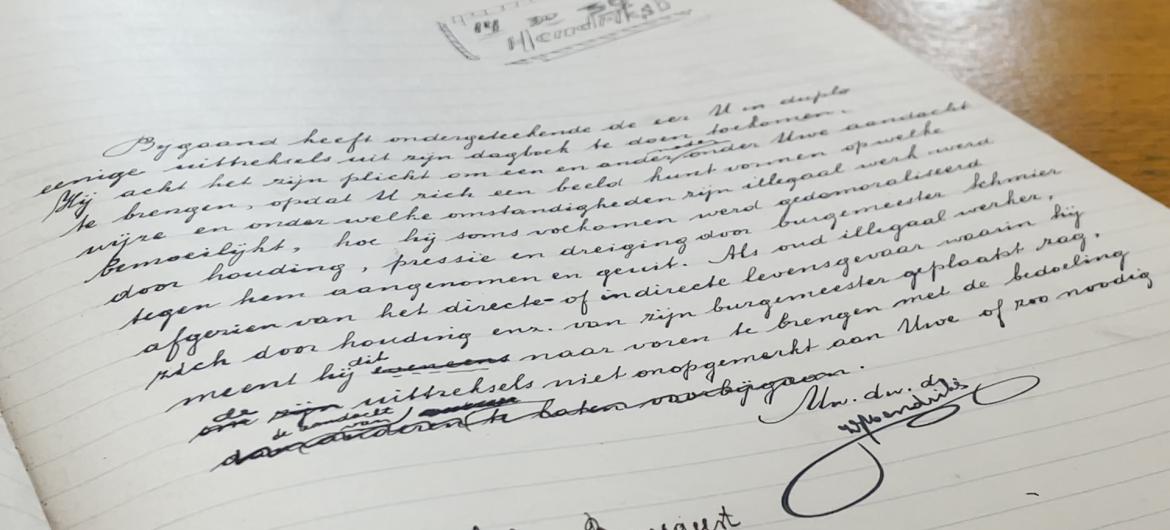 Hendriks
Bijgaand heeft ondergeteekende de eer U in duplo
eenige uittreksels uit zijn dagboek te doen toekomen.
Hij acht het zijn plicht om een en ander onder Uwe aandacht
te brengen, opdat U zich een beeld kunt vormen op welke
wijze en onder welke omstandigheden zijn illegaal werk werd
bemoeilijkt, hoe hij soms volkomen werd gedomoraliseerd
door houding, pressie en dreiging door burgemeester Schmier
tegen hem aangenomen en geuit. Als oud illegaal werker,
afgezien van het directe- of indirecte levensgevaar waarin hij
zich door houding enz. van zijn burgemeester geplaatst zag,
meent hij dit eveneens naar voren te brengen met de bedoeling
de
om zijn uittreksels niet onopgemerkt aan Uwe of zoo noodig
de aandacht van
anderen te laten voorbijgaan.
dw. d.